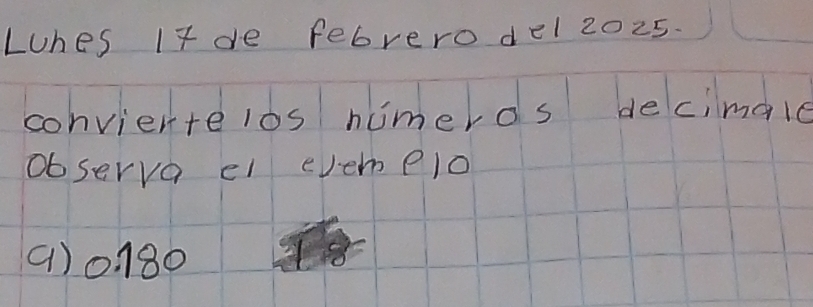 Lunes 17 de febrero del 2025.
convierte los números decimale
Observa el ejemplo
a) 0.180